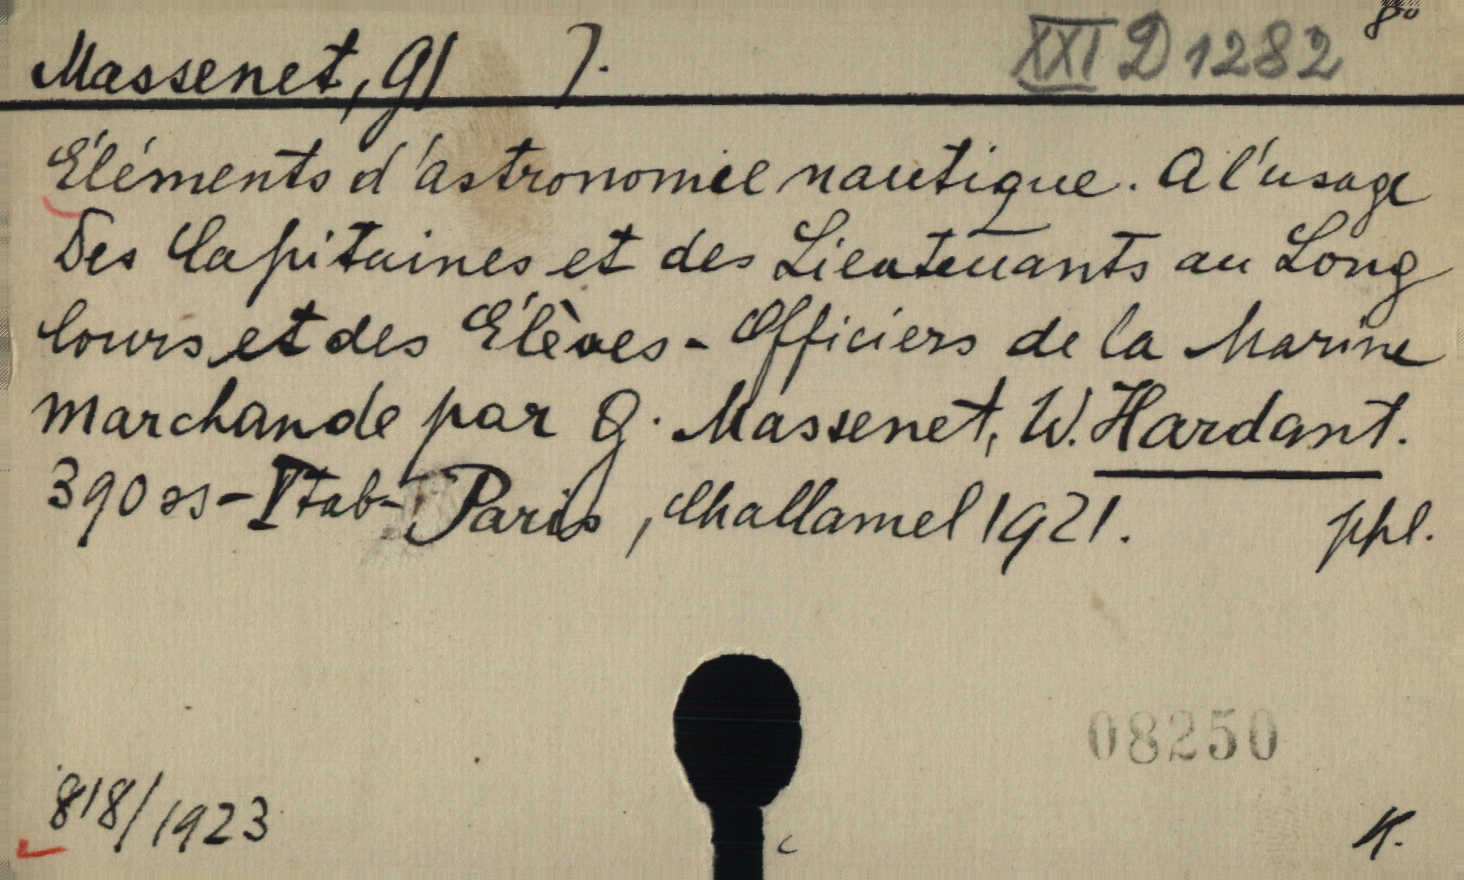 Massenet, G / 7. XXI D 1282 8°
Éléments d'astronomie nautique. A l'usage
Des Capitaines et des Lieutenants au Long
Cours et des Élèves - Officiers de la Marine
marchande par G. Massenet, W. Hardant.
390 ss - I tab - Paris, Challamel 1921. ppl.
08250
818/1923
K.